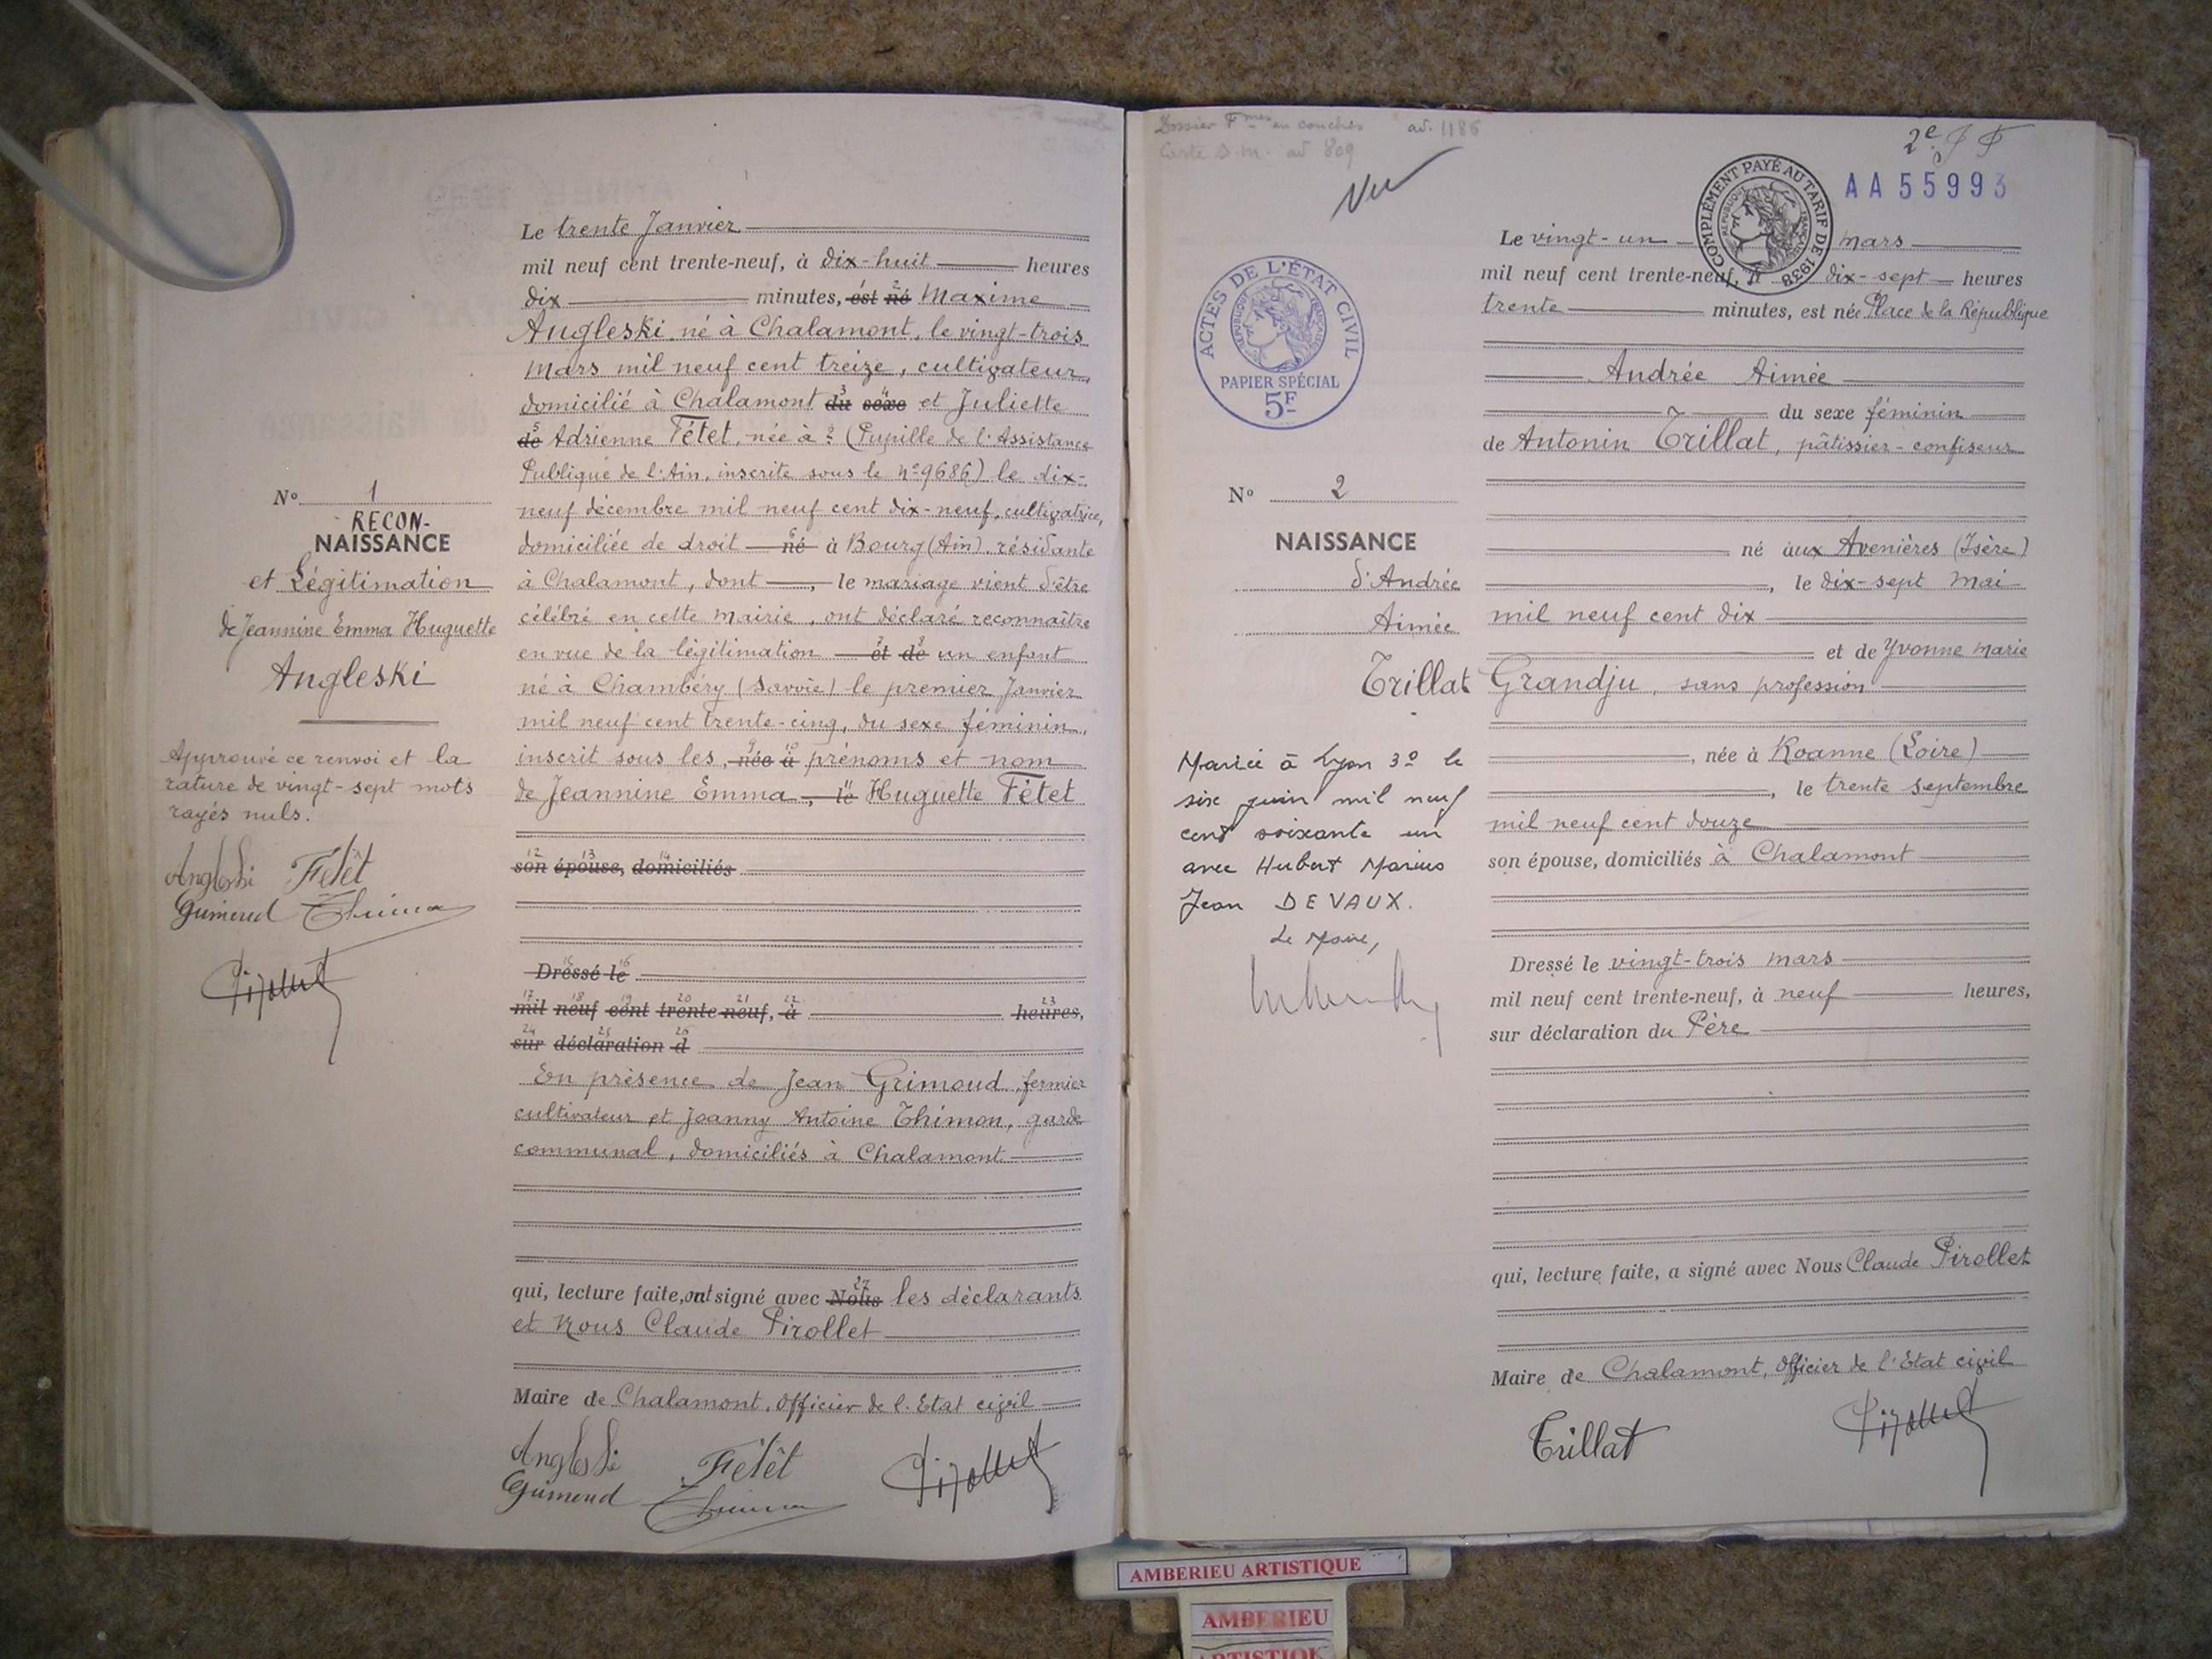 Le trente Janvier
mil neuf cent trente-neuf, à dix-huit heures
dix minutes, est né Maxime
Angleski, né à Chalamont, le vingt-trois
Mars mil neuf cent treize, cultivateur,
domicilié à Chalamont du sexe et Juliette
de Adrienne Tétet, née à ? (Pupille de l'Assistance
Publique de l'Ain, inscrite sous le N° 9686) le dix-
neuf décembre mil neuf cent dix-neuf, cultivatrice,
domiciliée de droit né à Bourg (Ain), résidante
à Chalamont, dont , le mariage vient d'être
célébré en cette mairie, ont déclaré reconnaître
en vue de la légitimation et de un enfant
né à Chambéry (Savoie) le premier Janvier
mil neuf cent trente-cinq, du sexe féminin,
inscrit sous les , née à prénoms et nom
de Jeannine Emma , le Huguette Tétet
son épouse, domiciliés
Dressé le
mil neuf cent trente-neuf, à heures,
sur déclaration d
En présence de Jean Grimoud, fermier
cultivateur et Joanny Antoine Thimon, garde
communal, domiciliés à Chalamont
qui, lecture faite, ont signé avec Nous les déclarants
et Nous Claude Pirollet
Maire de Chalamont, Officier de l'Etat civil
Angleski Fétêt
N° 1
RECON-
NAISSANCE
et Légitimation
de Jeannine Emma Huguette
Angleski
Approuvé ce renvoi et la
rature de vingt-sept mots
rayés nuls.
Angleski Fétêt
Dossier Fmes en couches av. 1186
Carte S.M. av 809
Vu
2e
COMPLÉMENT PAYÉ AU TARIF DE 1938
AA 55993
ACTES DE L'ÉTAT CIVIL
RÉPUBLIQUE FRANÇAISE
PAPIER SPÉCIAL
5F
N° 2
NAISSANCE
d'Andrée
Aimée
Trillat
Mariée à Lyon 3e le
six juin mil neuf
cent soixante un
avec Hubert Marius
Jean DEVAUX.
Le Maire,
Le vingt-un mars
mil neuf cent trente-neuf, à dix-sept heures
trente minutes, est née Place de la République
Andrée Aimée
du sexe féminin
de Antonin Trillat, pâtissier-confiseur
né aux Avenières (Isère)
, le dix-sept Mai
mil neuf cent dix
et de Yvonne Marie
Grandju, sans profession
, née à Roanne (Loire)
, le trente septembre
mil neuf cent douze
son épouse, domiciliés à Chalamont
Dressé le vingt-trois mars
mil neuf cent trente-neuf, à neuf heures,
sur déclaration du Père
qui, lecture faite, a signé avec Nous Claude Pirollet
Maire de Chalamont, Officier de l'Etat civil
Trillat
AMBERIEU ARTISTIQUE
AMBERIEU